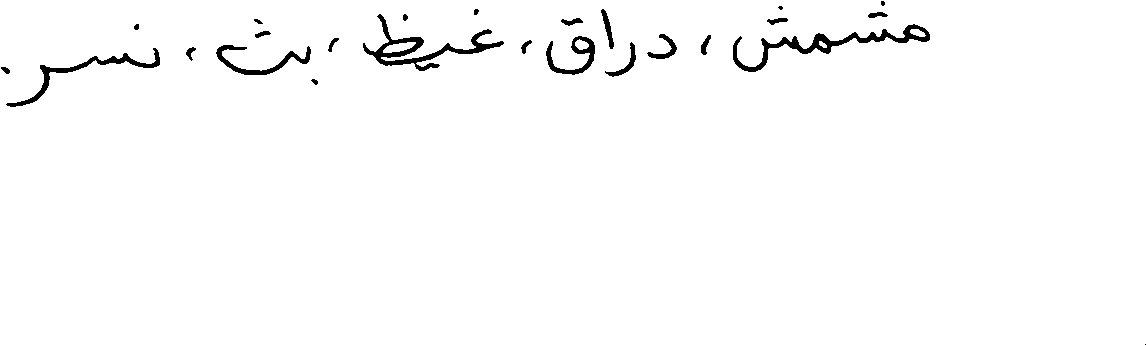 مشمش، دراق، غيظ، بث، نسر.